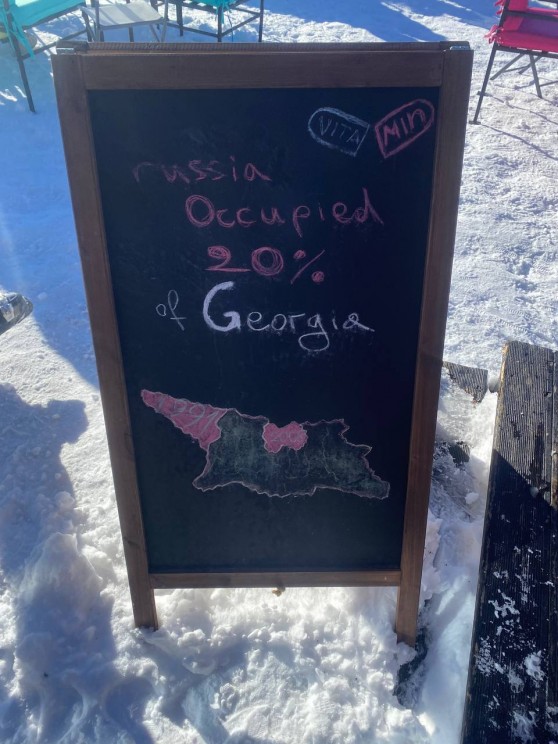 VITA MIN
russia
Occupied
20%
of Georgia
20%
20%